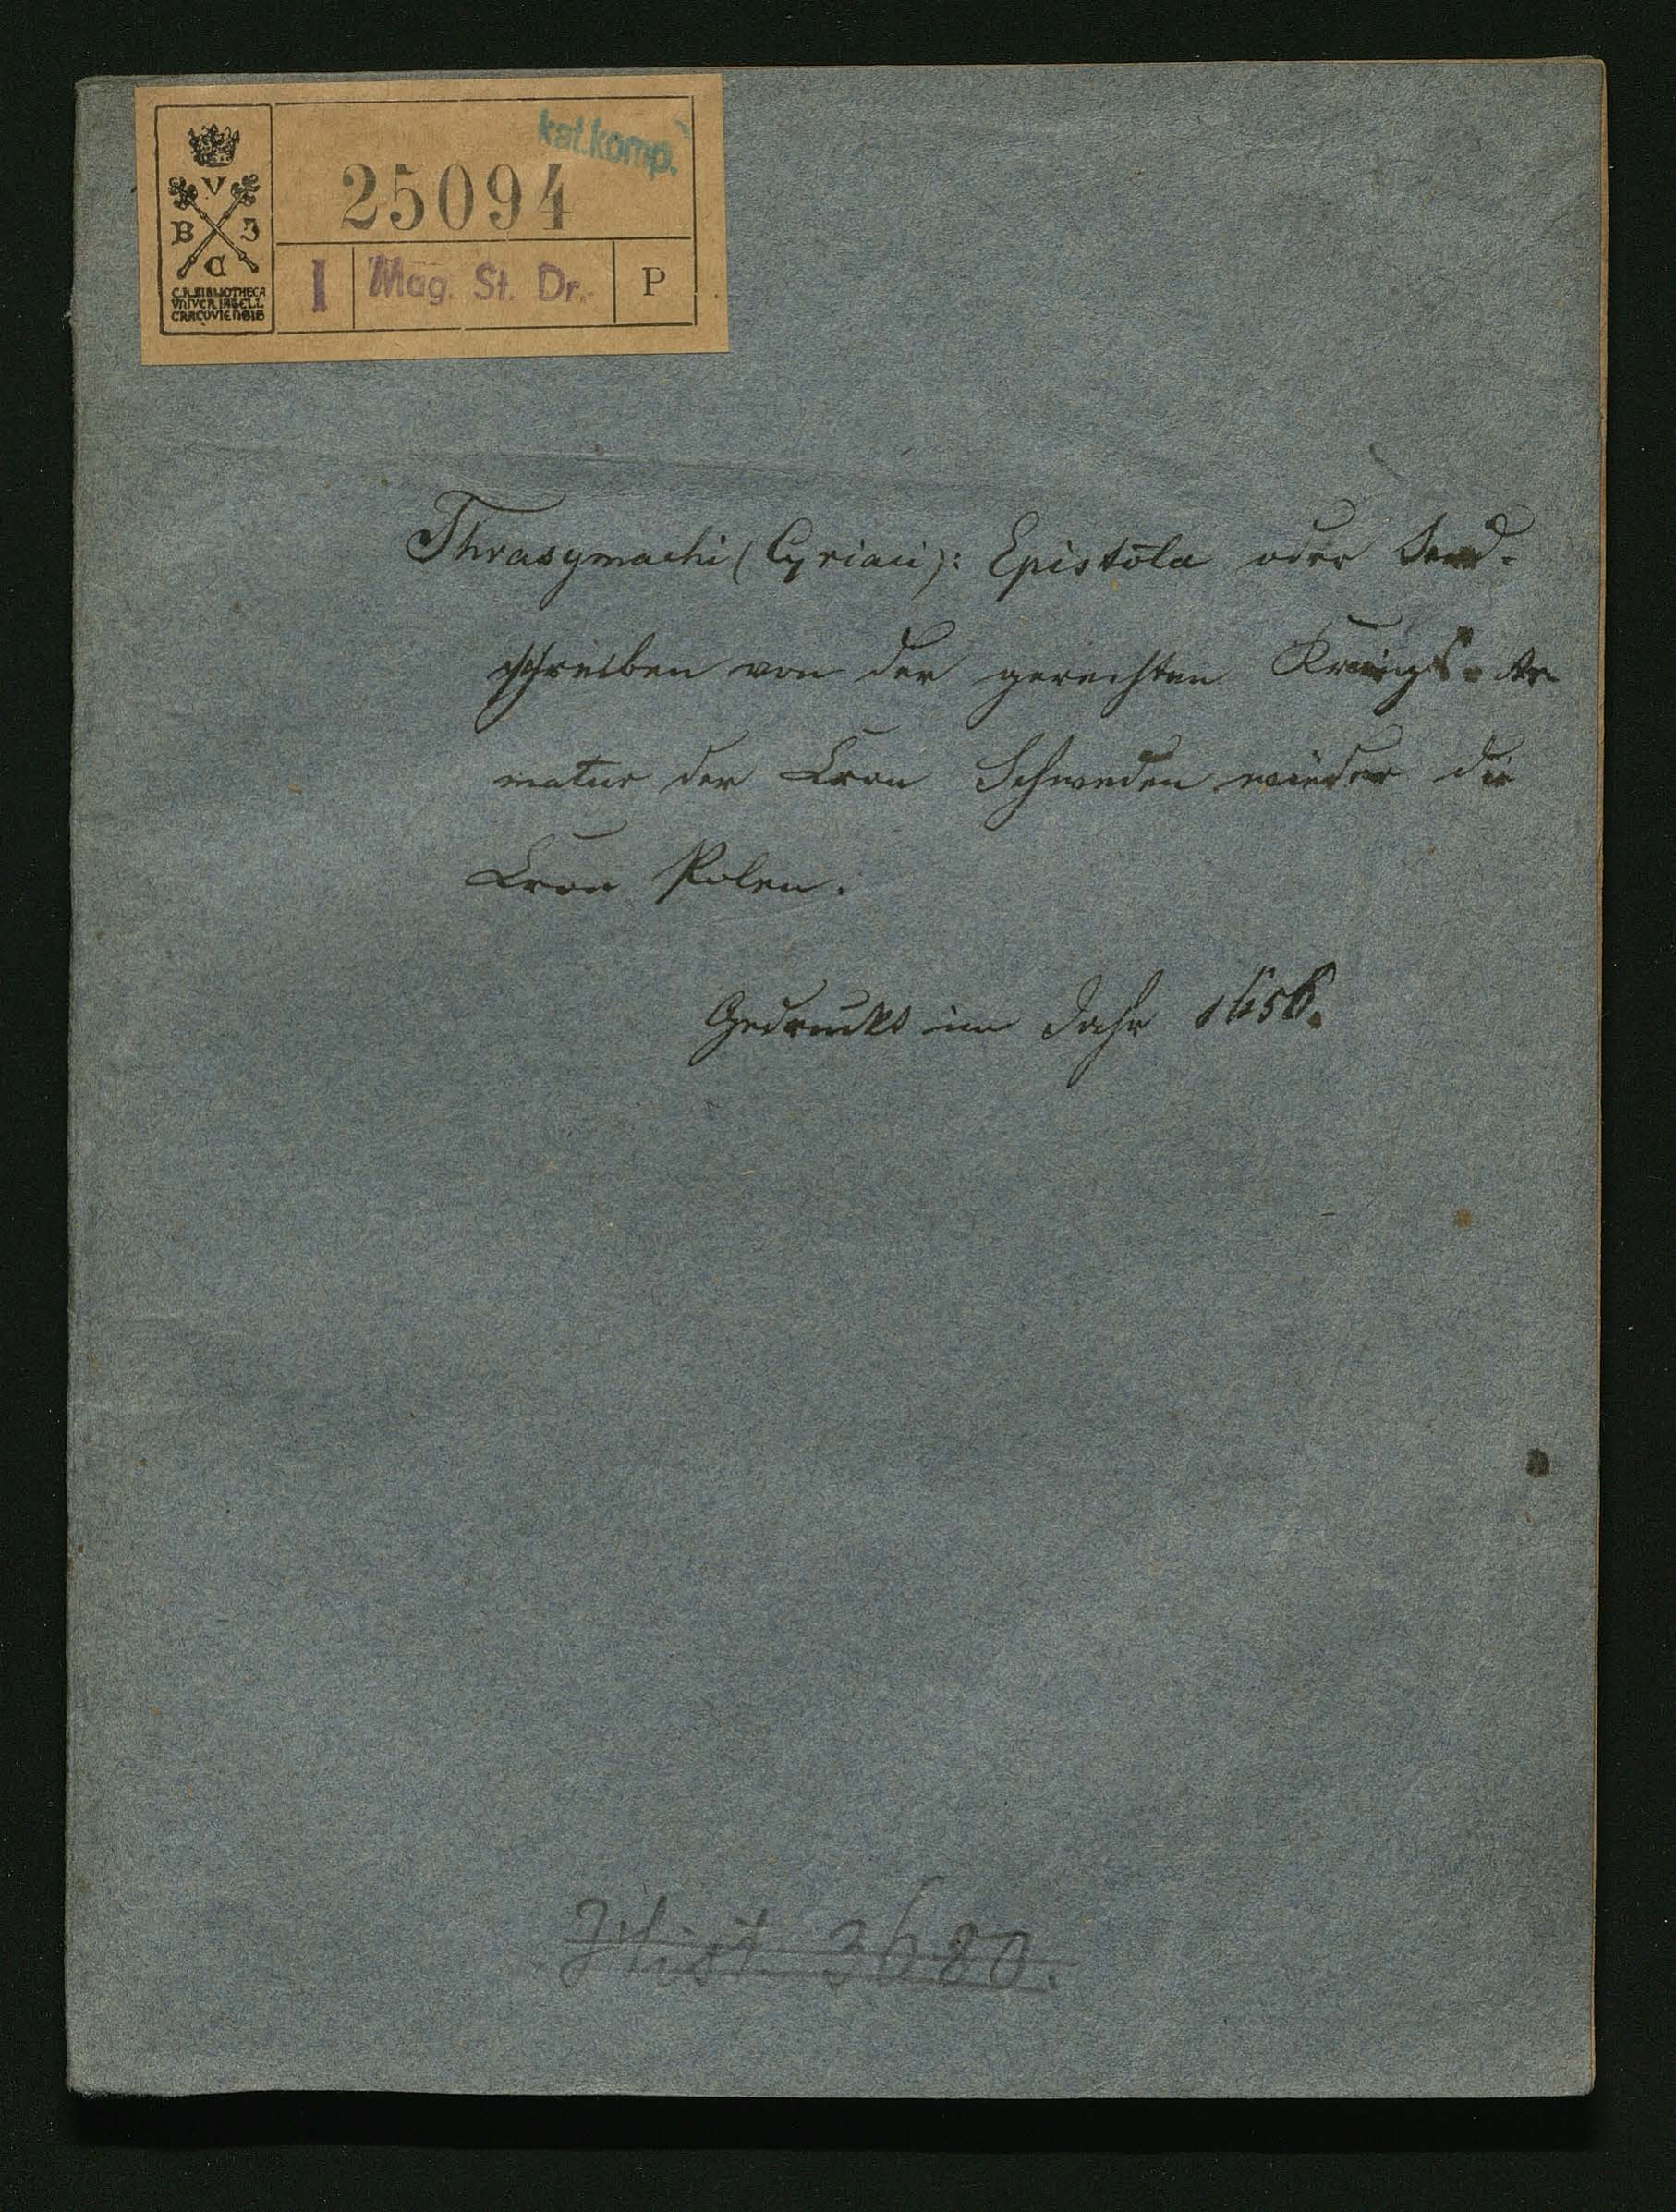 kat.komp.
25094
V
B J
C
C.R.BIBLIOTHECA
VNIVER.IAGELL.
CRACOVIENSIS
I Mag. St. Dr. P
Thrasymachi (Cyriaci): Epistola oder Send-
schreiben von der gerechten Kriegs-Ar
matur der Cron Schweden wieder die
Cron Polen.
Gedruckt im Jahr 1656.
Hist. 3680.